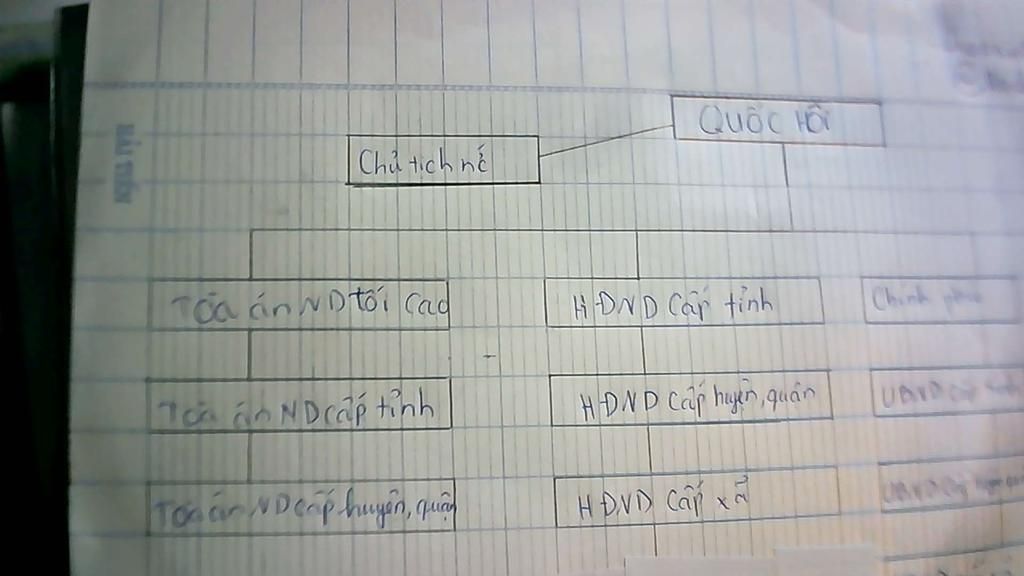 QUỐC HỘI
Chủ tịch nc
TÒA án ND tối cao
HĐND Cấp tỉnh
Chính phủ
TÒA án ND cấp tỉnh
HĐND Cấp huyện, quận
UBND cấp
TÒA án ND cấp huyện, quận
HĐND Cấp xã
UBND cấp